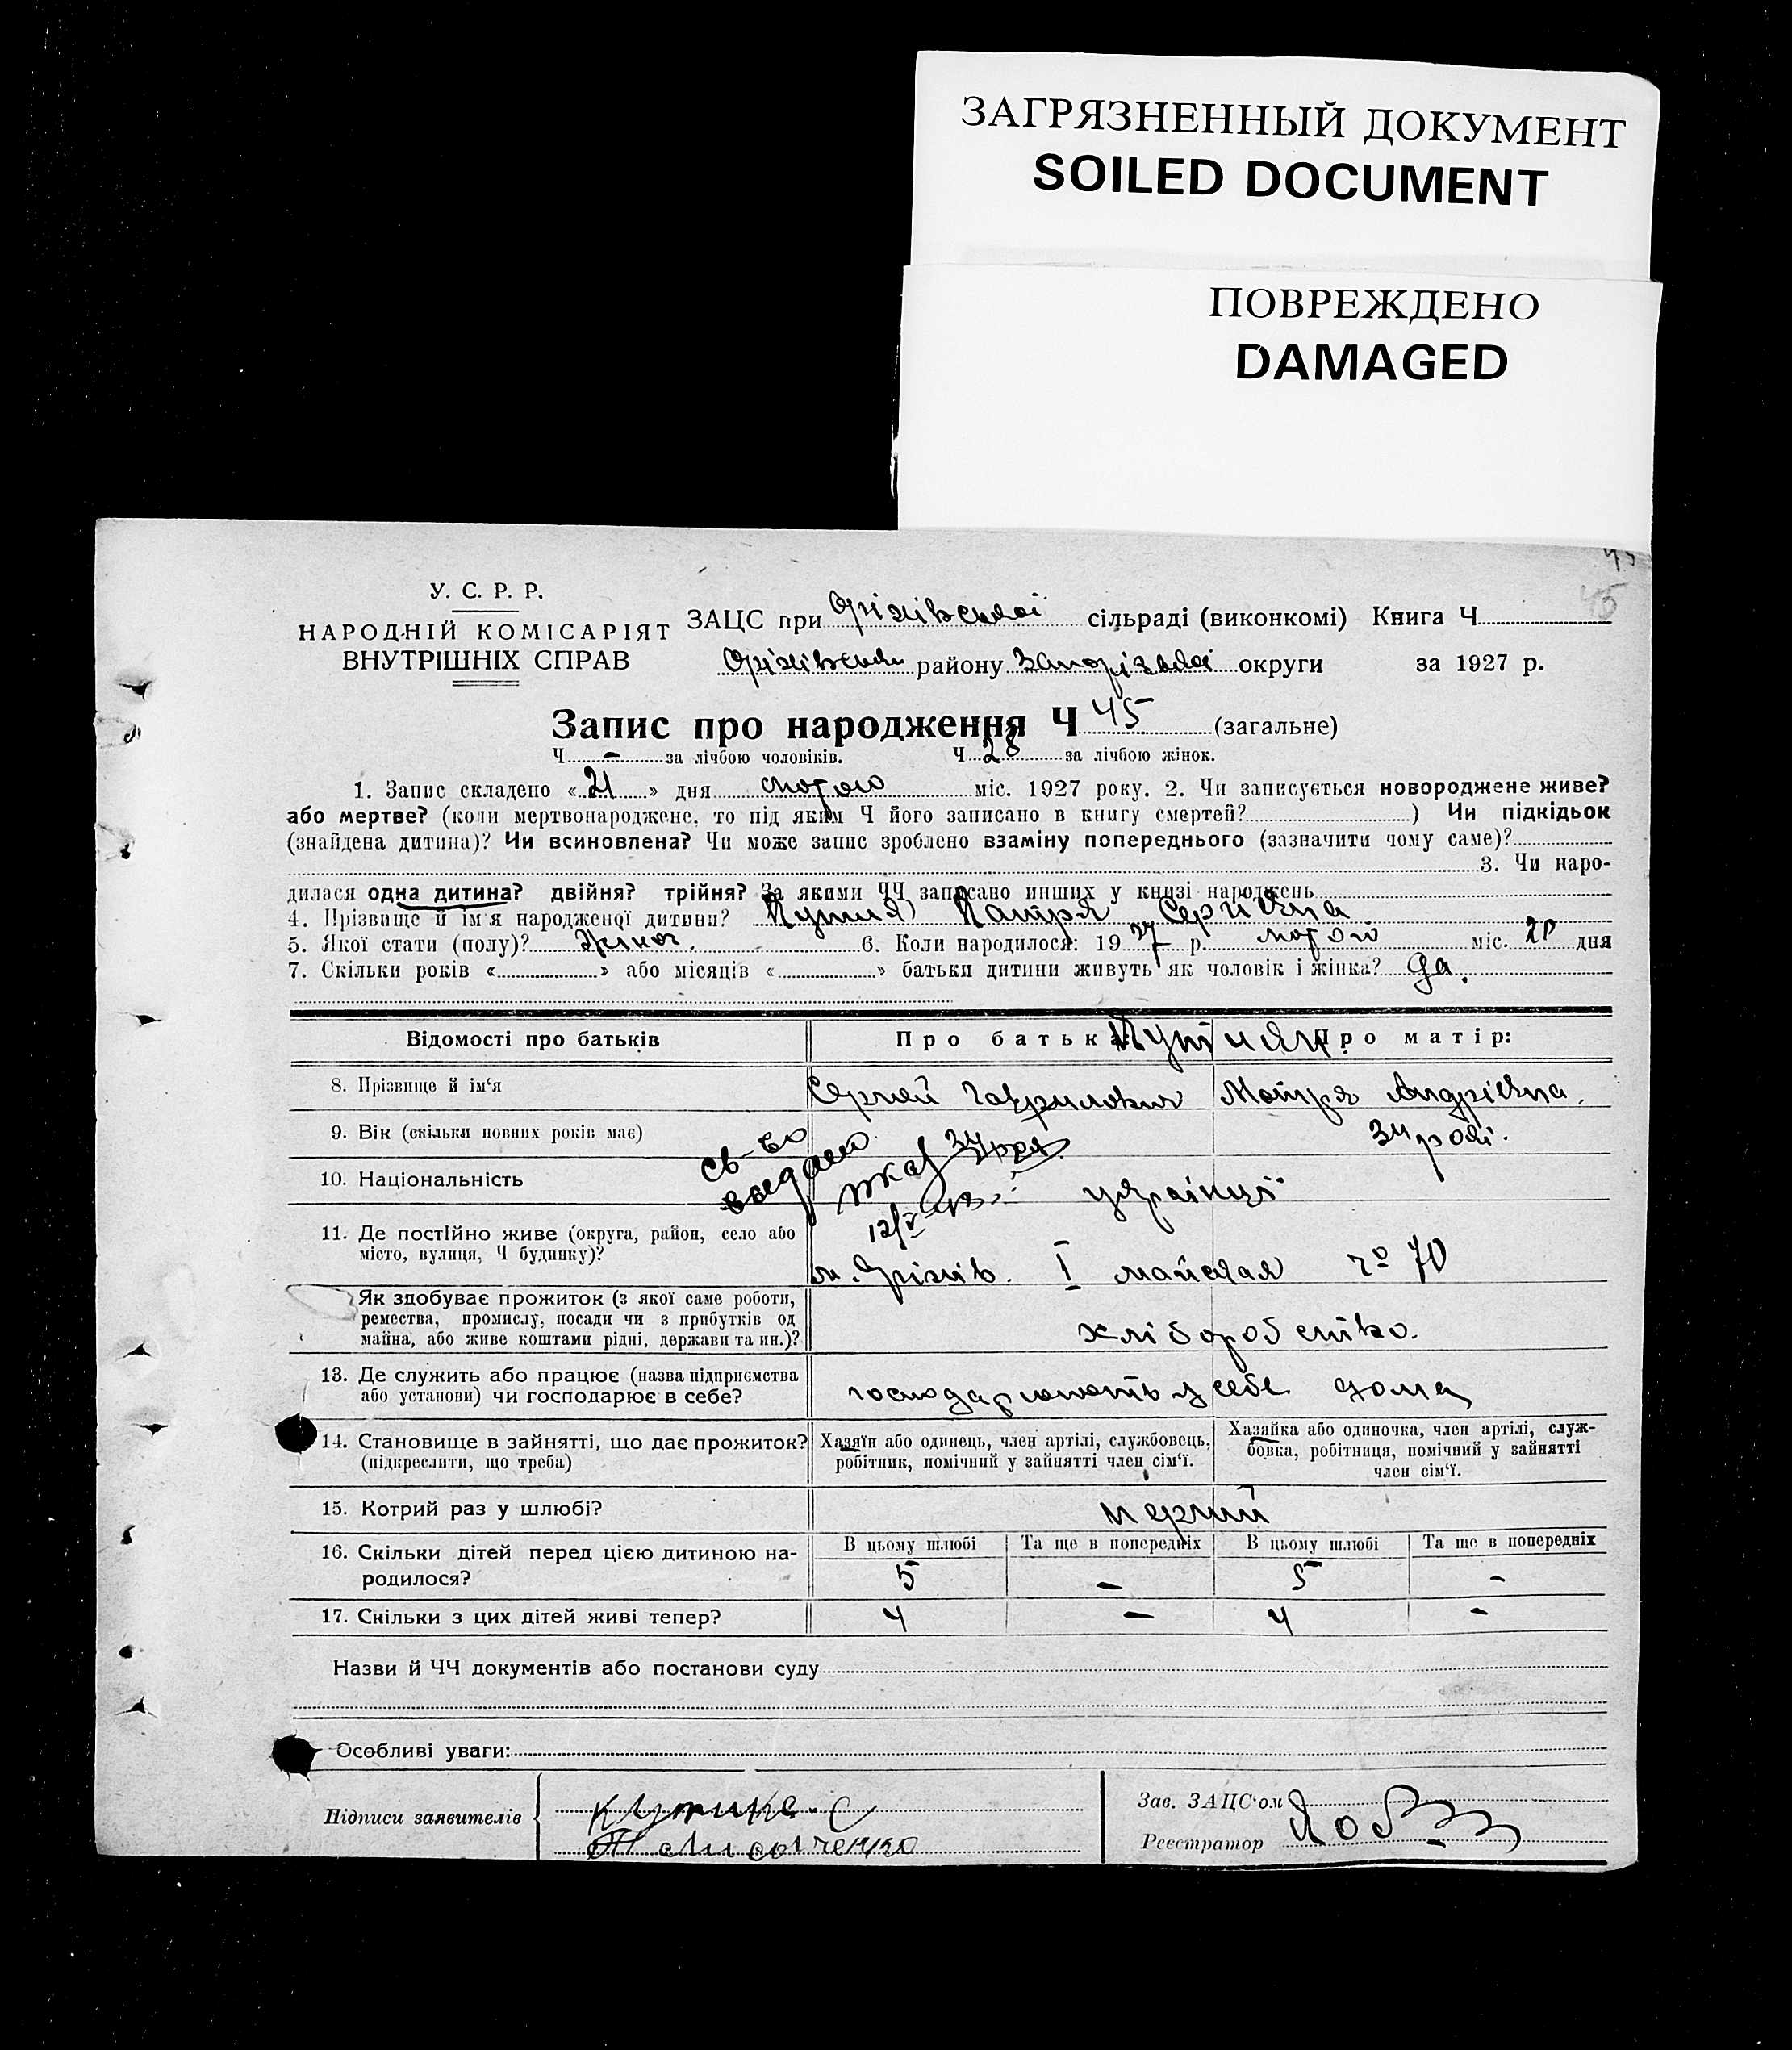 ЗАГРЯЗНЕННЫЙ ДОКУМЕНТ
SOILED DOCUMENT
ПОВРЕЖДЕНО
DAMAGED
45
У. С. Р. Р.
НАРОДНІЙ КОМІСАРІЯТ
ВНУТРІШНІХ СПРАВ
ЗАЦС при Оріхівській сільраді (виконкомі) Книга Ч
Оріхівськ району Запорізької округи за 1927 р.
Запис про народження Ч 45 (загальне)
Ч - за лічбою чоловіків. Ч 28 за лічбою жінок.
1. Запис складено «21» дня лютого міс. 1927 року. 2. Чи записується новороджене живе?
або мертве? (коли мертвонароджене, то під яким Ч його записано в книгу смертей? ) Чи підкідьок
(знайдена дитина)? Чи всиновлена? Чи може запис зроблено взаміну попереднього (зазначити чому саме)?
3. Чи наро-
дилася одна дитина? двійня? трійня? За якими ЧЧ записано инших у книзі народжень
4. Прізвище й ім'я народженої дитини? Мотря Сергіївна
5. Якої стати (полу)? жіноч. 6. Коли народилося: 1927 р. лютого міс. 20 дня
7. Скільки років « » або місяців « » батьки дитини живуть як чоловік і жінка? да.
Відомості про батьків
Про батька: Про матір:
8. Прізвище й ім'я Сергей Гаврилович Мотря Андріївна.
9. Вік (скільки повних років має) 34 роки 34 роки.
св-во
выдано
10. Національність українці
11. Де постійно живе (округа, район, село або
місто, вулиця, Ч будинку)?
м. Оріхів. I майская № 70
Як здобуває прожиток (з якої саме роботи,
ремества, промислу, посади чи з прибутків од
майна, або живе коштами рідні, держави та ин.)?
хліборобство.
13. Де служить або працює (назва підприємства
або установи) чи господарює в себе?
господарюють у себе дома
14. Становище в зайнятті, що дає прожиток?
(підкреслити, що треба)
Хазяїн або одинець, член артілі, службовець,
робітник, помічний у зайнятті член сім'ї.
Хазяйка або одиночка, член артілі, служ-
бовка, робітниця, помічний у зайнятті
член сім'ї.
15. Котрий раз у шлюбі? перший
16. Скільки дітей перед цією дитиною на-
родилося?
В цьому шлюбі Та ще в попередніх В цьому шлюбі Та ще в попередніх
5 - 5 -
17. Скільки з цих дітей живі тепер? 4 - 4 -
Назви й ЧЧ документів або постанови суду
Особливі уваги:
Підписи заявителів
Зав. ЗАЦС'ом
Реєстратор